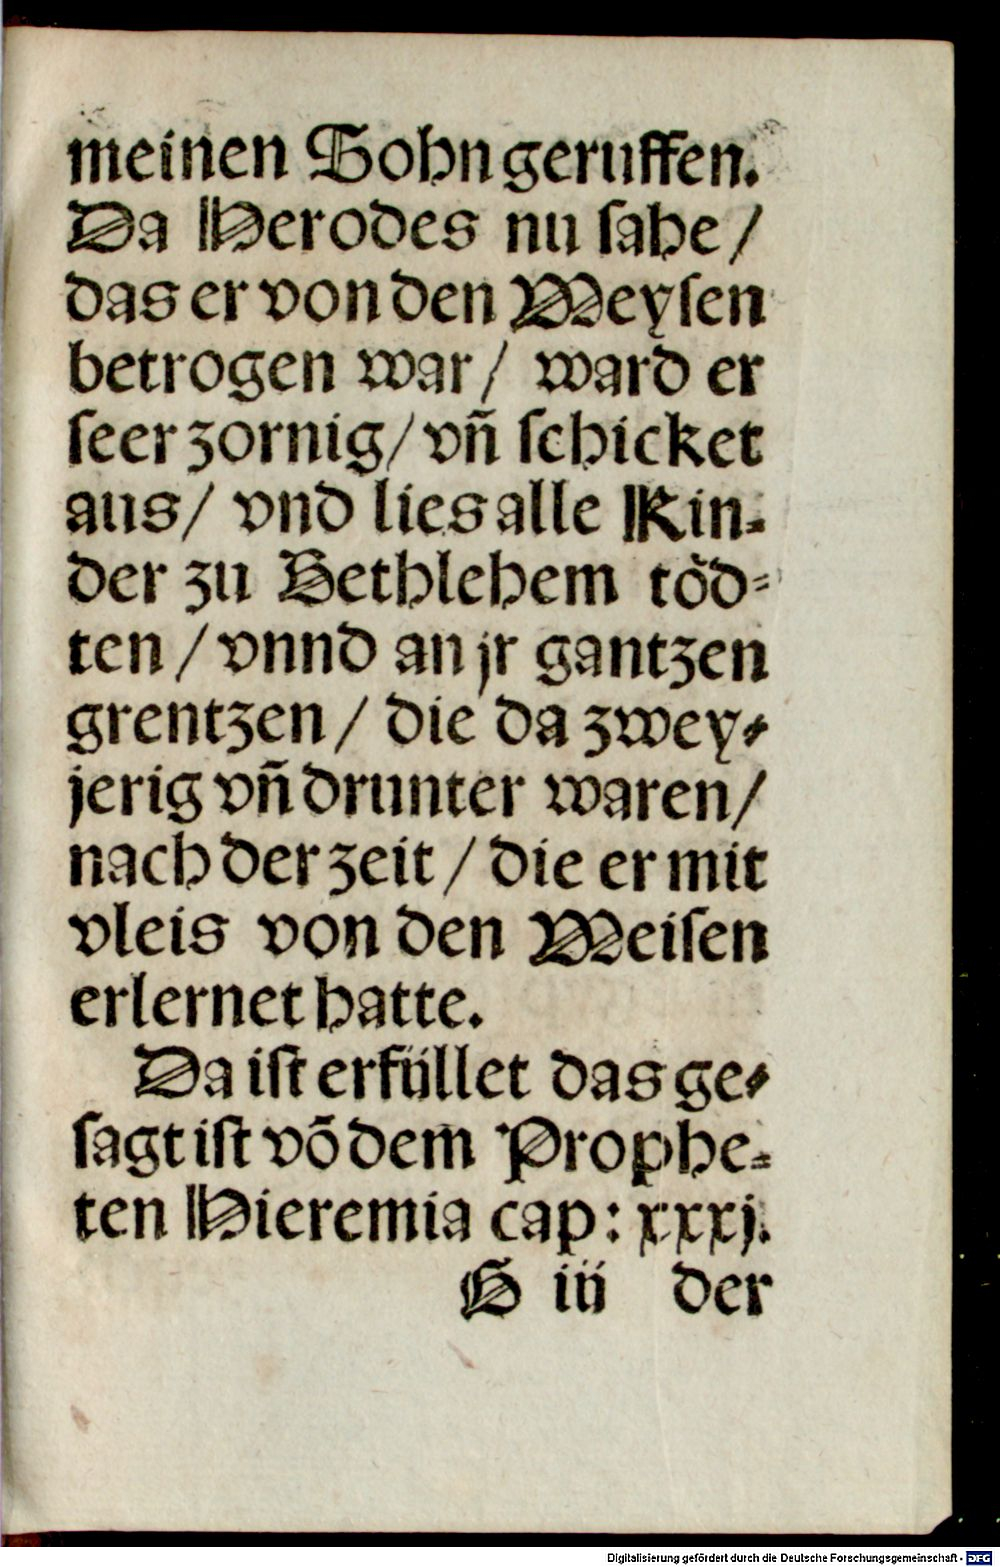 meinen Sohn geruffen.
Da Herodes nu ſahe /
das er von den Weyſen
betrogen war / ward er
ſeer zornig / vñ ſchicket
aus / vnd lies alle Kin⸗
der zu Bethlehem toͤd⸗
ten / vnnd an jr gantzen
grentzen / die da zwey⸗
jerig vñ drunter waren /
nach der zeit / die er mit
vleis von den Weiſen
erlernet hatte.
Da iſt erfüllet das ge⸗
ſagt iſt võ dem Prophe⸗
ten Hieremia cap: xxxj.
G iij der
Digitalisierung gefördert durch die Deutsche Forschungsgemeinschaft - DFG